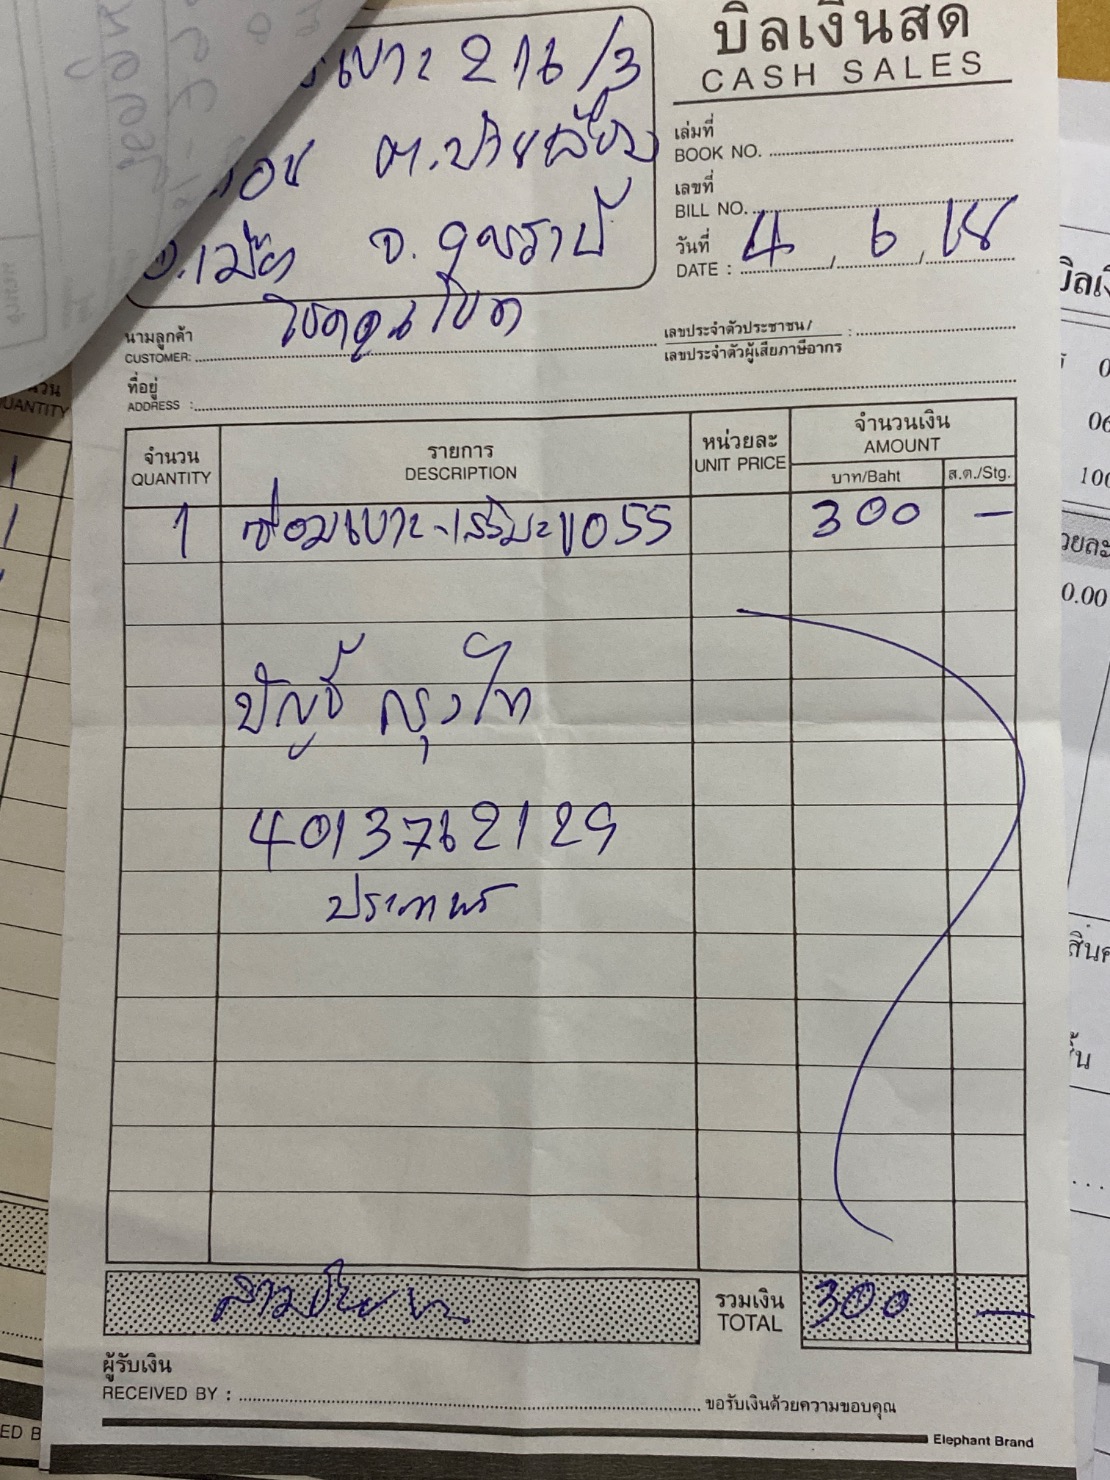 บิลเงินสด
CASH SALES
เบาะ 216/3
อ.เมือง จ.อุดรธานี
เล่มที่
BOOK NO.
เลขที่
BILL NO.
วันที่
DATE : 4 / 6 /
นามลูกค้า
CUSTOMER:
เลขประจำตัวประชาชน/
เลขประจำตัวผู้เสียภาษีอากร :
ที่อยู่
ADDRESS :
จำนวน
QUANTITY
รายการ
DESCRIPTION
หน่วยละ
UNIT PRICE
จำนวนเงิน
AMOUNT
บาท/Baht ส.ต./Stg.
1 ซ่อมเบาะ 300 —
บัญชี กรุงไทย
4013762129
ประภาพร
สามร้อยบาท
รวมเงิน
TOTAL
300 —
ผู้รับเงิน
RECEIVED BY :
ขอรับเงินด้วยความขอบคุณ
Elephant Brand